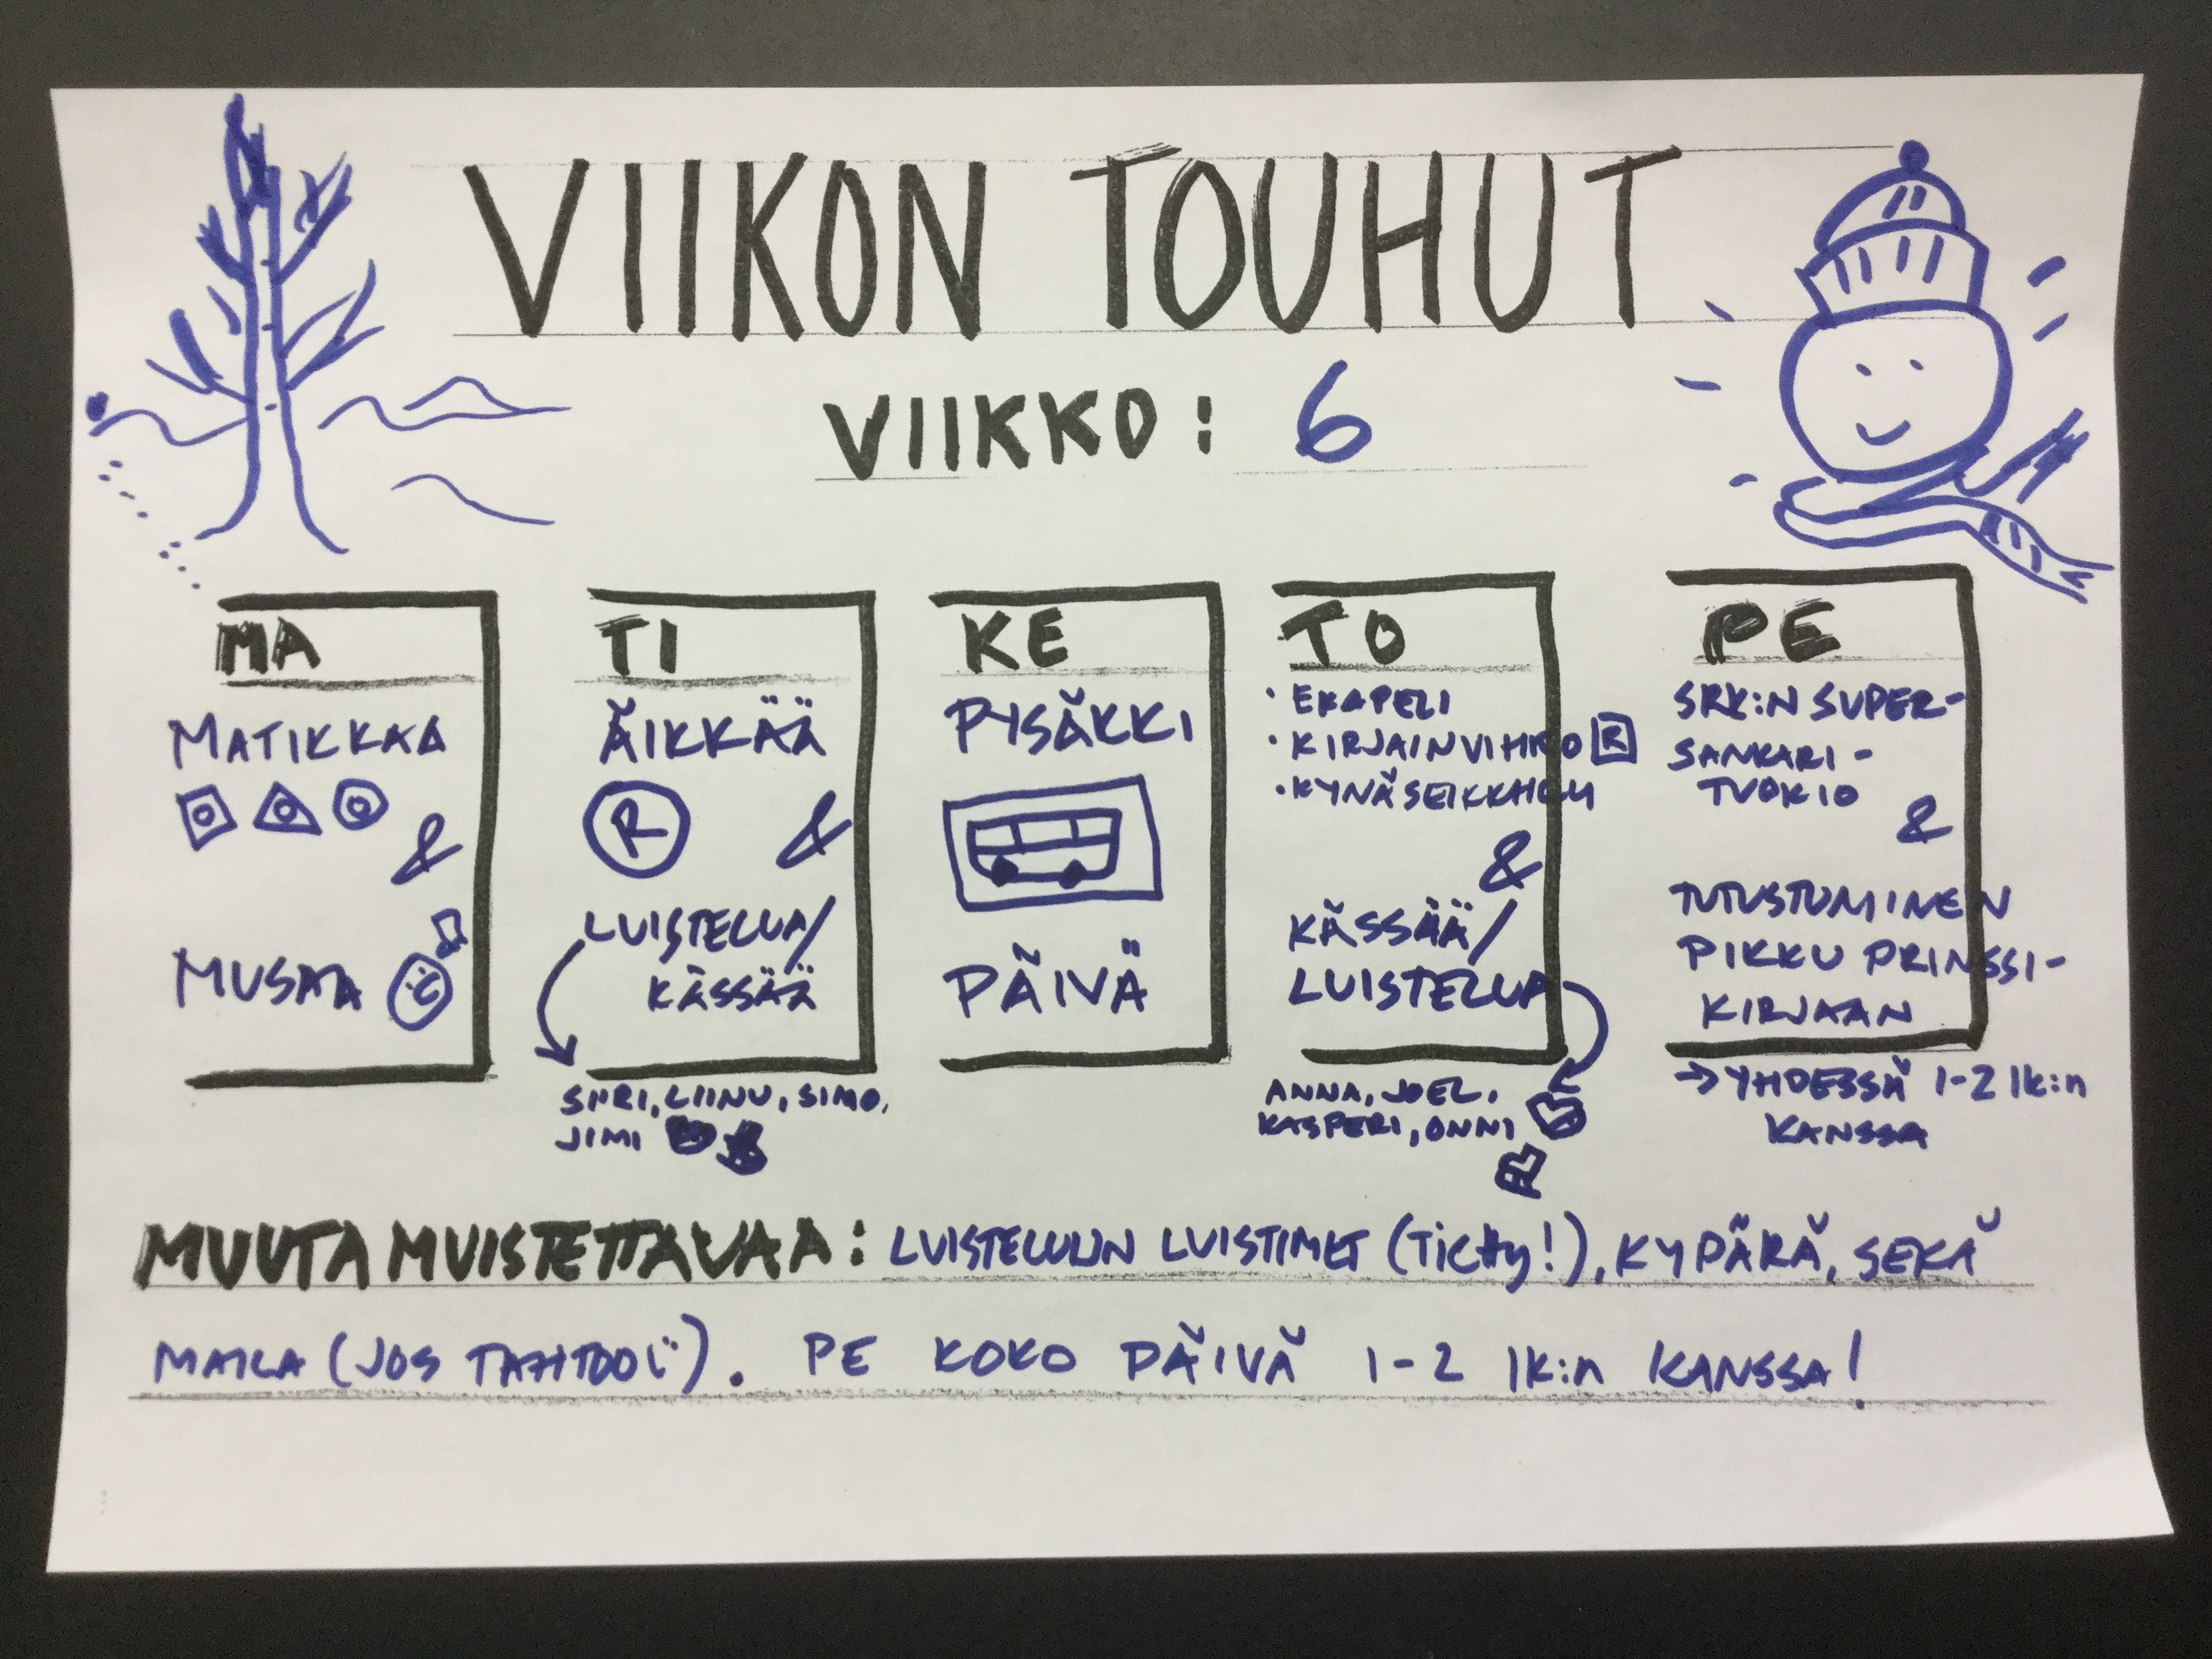 VIIKON TOUHUT
VIIKKO: 6
MA
MATIKKAA
&
MUSAA
TI
ÄIKKÄÄ
R &
LUISTELUA/
KÄSSÄÄ
SIIRI, LIINU, SIMO,
JIMI
KE
PYSÄKKI
PÄIVÄ
TO
• EKAPELI
• KIRJAINVIHKO R
• KYNÄSEIKKAILU
&
KÄSSÄÄ/
LUISTELUA
ANNA, JOEL,
KASPERI, ONNI
PE
SRK:N SUPER-
SANKARI-
TUOKIO
&
TUTUSTUMINEN
PIKKU PRINSSI-
KIRJAAN
→ YHDESSÄ 1-2 lk:n
KANSSA
MUUTA MUISTETTAVAA: LUISTELUUN LUISTIMET (), KYPÄRÄ, SEKÄ
MAILA (JOS TAHTOO). PE KOKO PÄIVÄ 1-2 lk:n KANSSA!